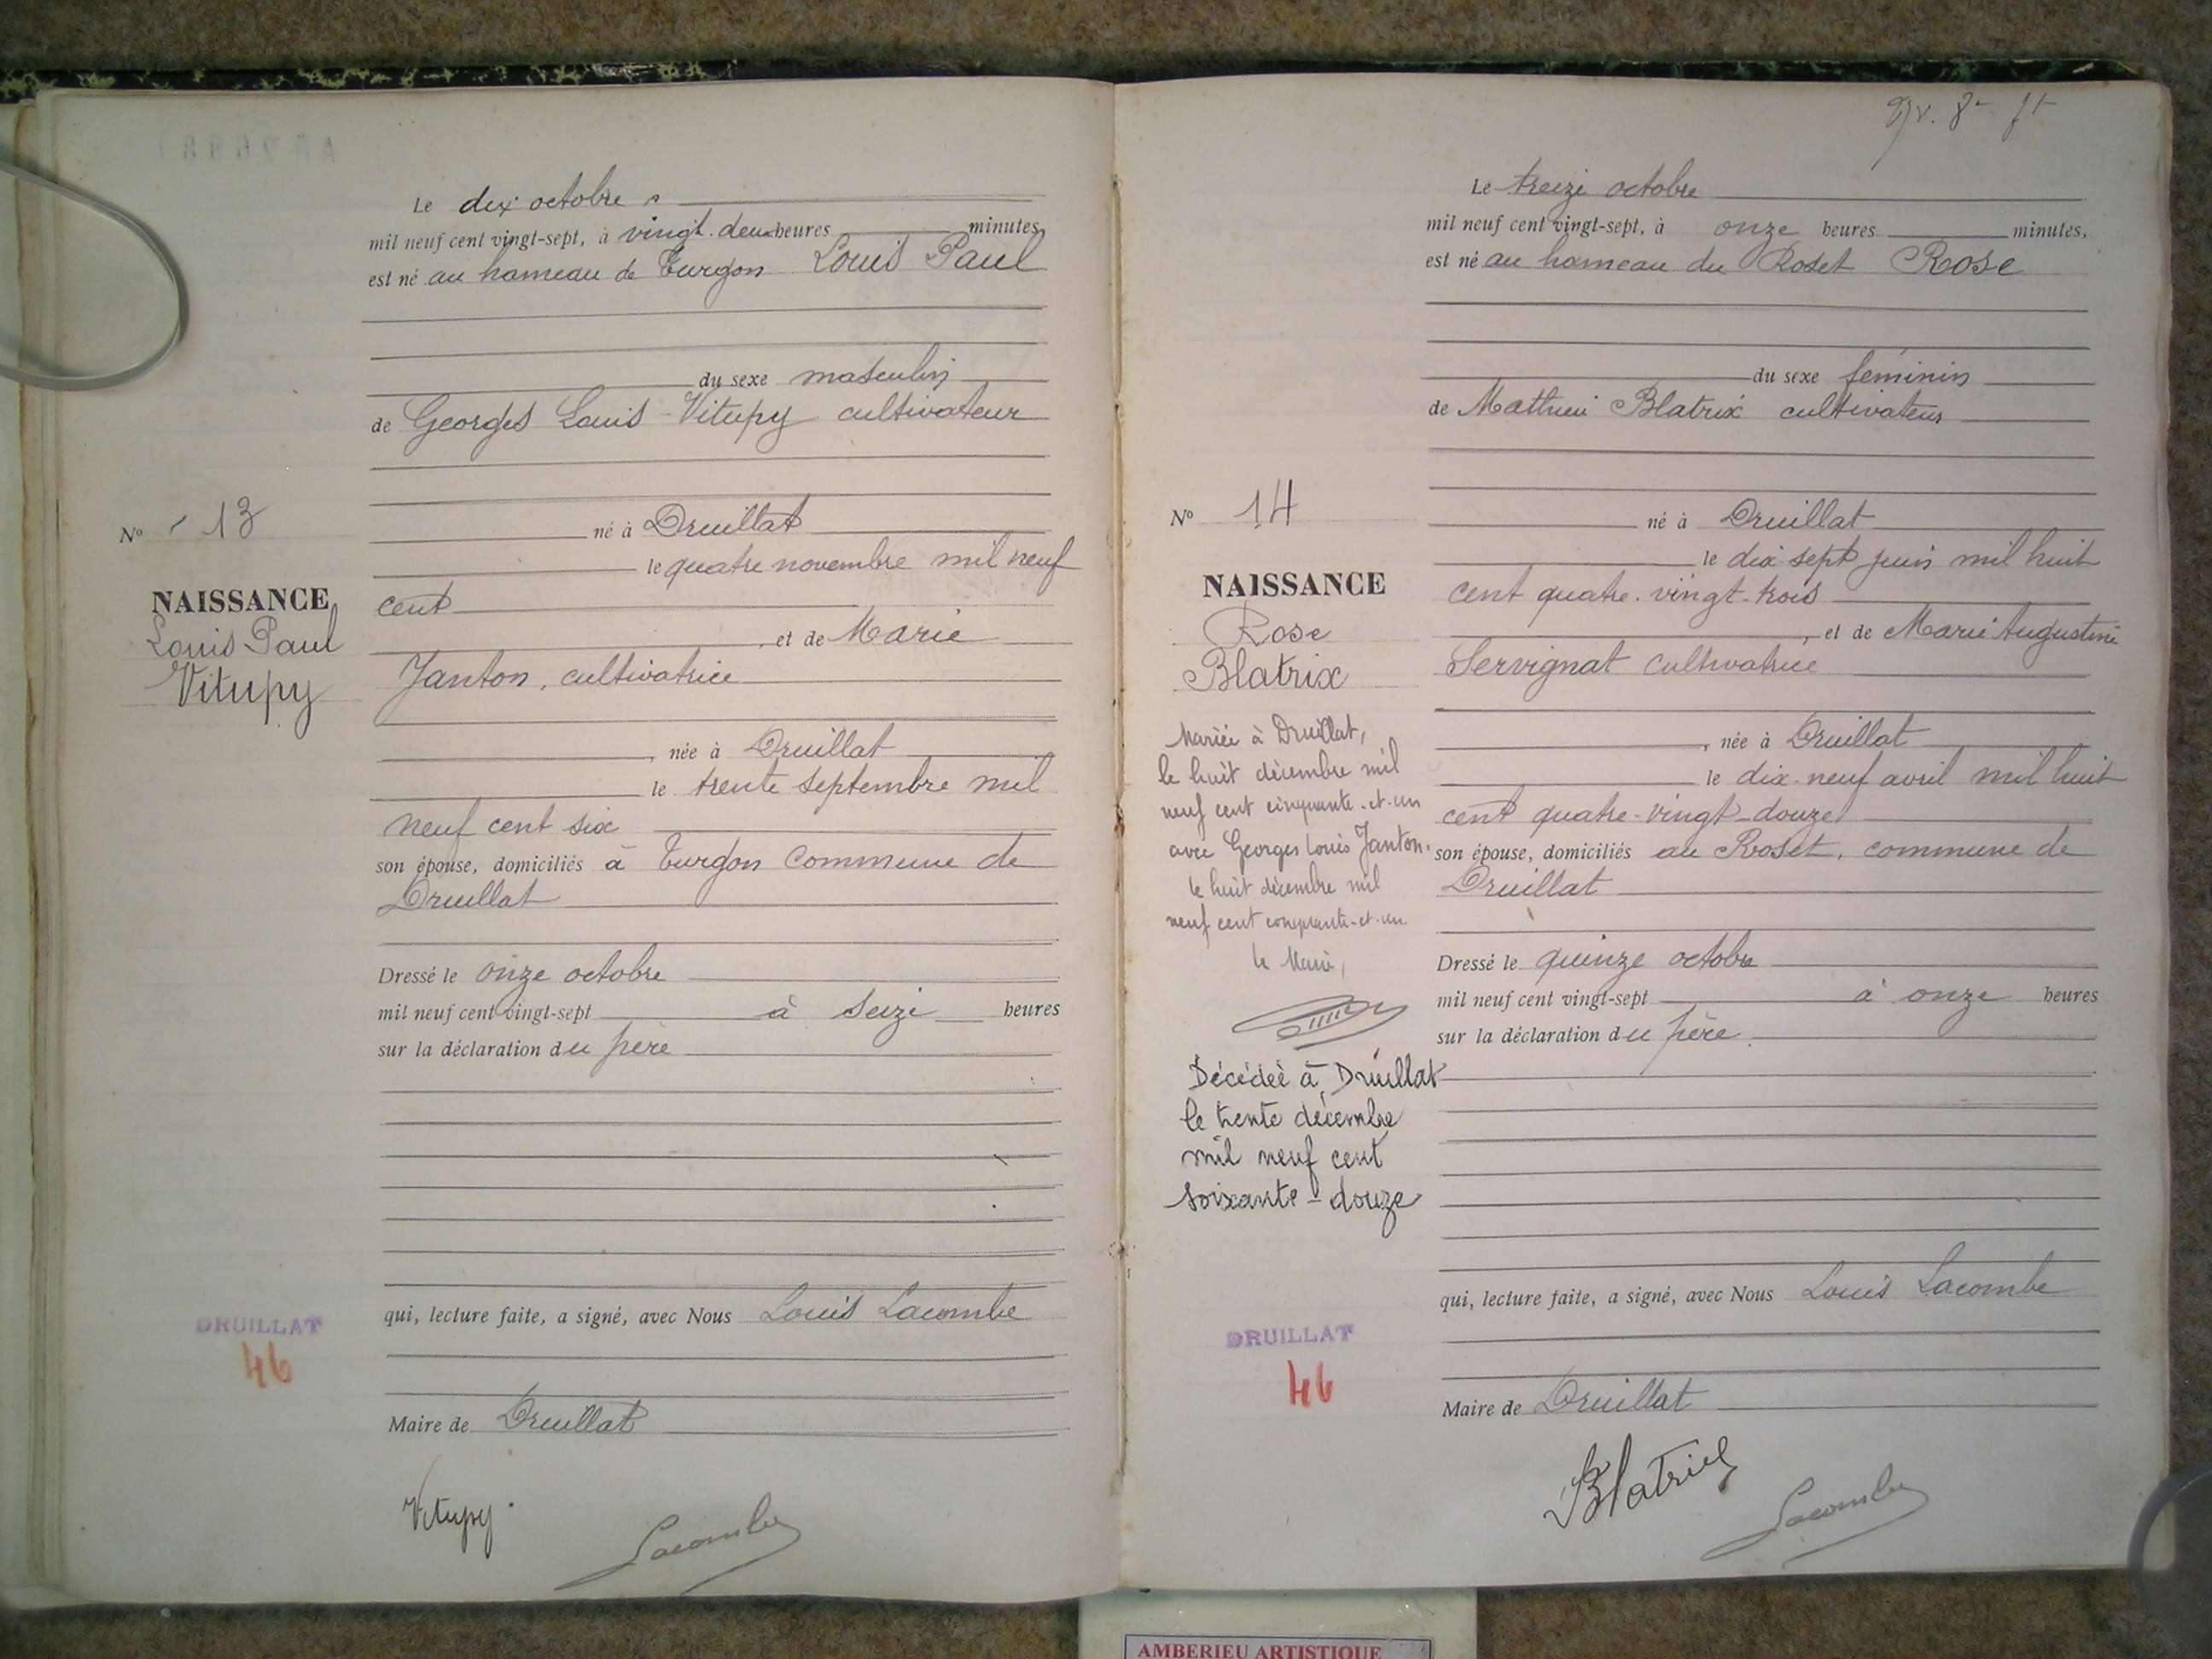 Le dix octobre
mil neuf cent vingt-sept, à vingt-deux heures minutes,
est né au hameau de Turgon Louis Paul
du sexe masculin
de Georges Louis Vitupy cultivateur
né à Druillat
le quatre novembre mil neuf
cent
, et de Marie
Janton, cultivatrice
, née à Druillat
le trente septembre mil
neuf cent six
son épouse, domiciliés à Turgon commune de
Druillat
Dressé le onze octobre
mil neuf cent vingt-sept à seize heures
sur la déclaration du père
qui, lecture faite, a signé, avec Nous Louis Lacombe
Maire de Druillat
Vitupy.
Lacombe
N° 13
NAISSANCE
Louis Paul
Vitupy
DRUILLAT
46
Le treize octobre
mil neuf cent vingt-sept, à onze heures minutes,
est né au hameau du Roset Rose
du sexe féminin
de Mathieu Blatrix cultivateur
né à Druillat
le dix sept juin mil huit
cent quatre-vingt-trois
, et de Marie Augustine
Servignat cultivatrice
, née à Druillat
le dix-neuf avril mil huit
cent quatre-vingt-douze
son épouse, domiciliés au Roset, commune de
Druillat
Dressé le quinze octobre
mil neuf cent vingt-sept à onze heures
sur la déclaration du père.
qui, lecture faite, a signé, avec Nous Louis Lacombe
Maire de Druillat
Blatrix
Lacombe
N° 14
NAISSANCE
Rose
Blatrix
Mariée à Druillat,
le huit décembre mil
neuf cent cinquante-et-un
avec Georges Louis Janton.
le huit décembre mil
neuf cent cinquante-et-un.
le Maire,
Décédée à Druillat
le trente décembre
mil neuf cent
soixante-douze
DRUILLAT
46
AMBERIEU ARTISTIQUE